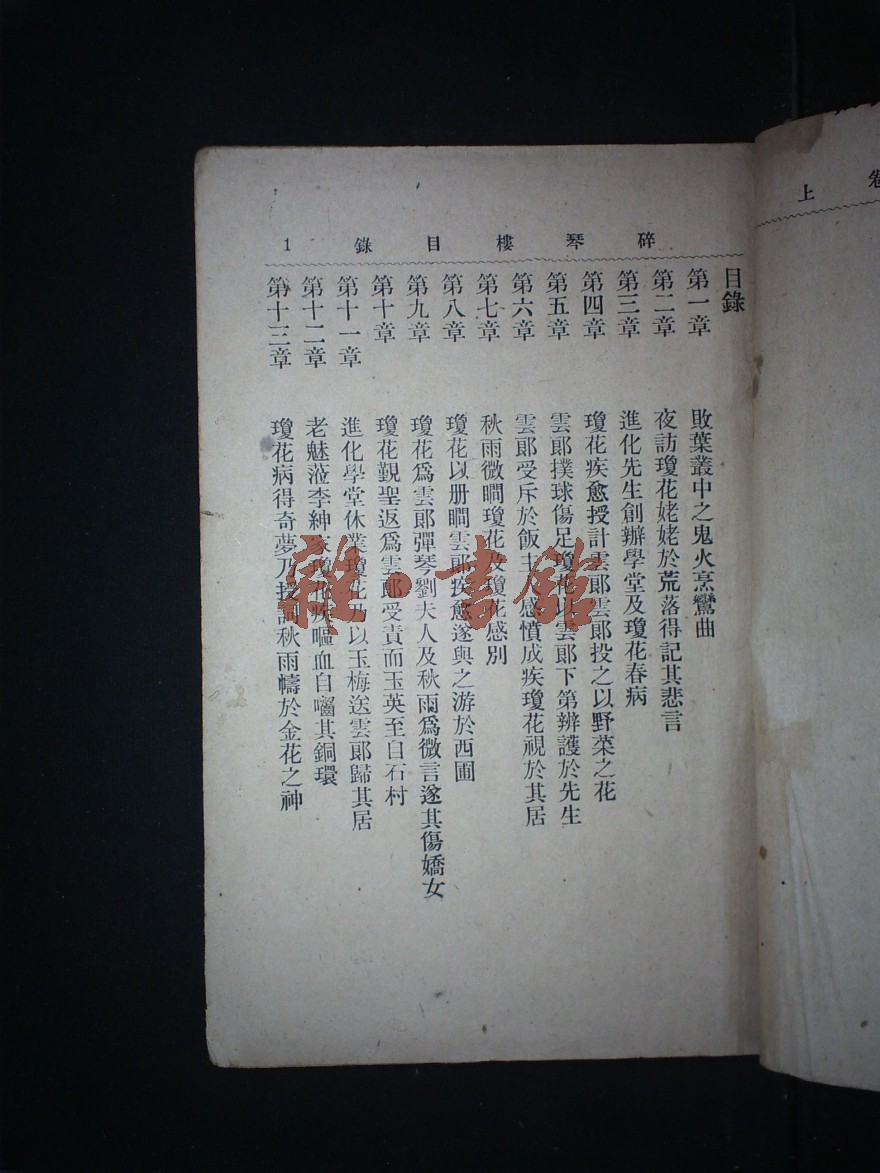 卷上
碎琴樓目錄 1
目錄
第一章 敗葉叢中之鬼火烹鸞曲
第二章 夜訪瓊花姥姥於荒落得記其悲言
第三章 進化先生創辦學堂及瓊花春病
第四章 瓊花疾愈授計雲郞雲郞投之以野菜之花
第五章 雲郞撲球傷足瓊花以雲郞下第辨護於先生
第六章 雲郞受斥於飯主人感憤成疾瓊花視於其居
第七章 秋雨微瞷瓊花及瓊花感別
第八章 瓊花以册瞷雲郞疾愈遂與之游於西圃
第九章 瓊花爲雲郞彈琴劉夫人及秋雨爲微言遂其傷嬌女
第十章 瓊花覲聖返爲雲郞受責而玉英至白石村
第十一章 進化學堂休業瓊花乃以玉梅送雲郞歸其居
第十二章 老魅蒞李紳家瓊花疾嘔血自囓其銅環
第十三章 瓊花病得奇夢乃授詞秋雨禱於金花之神
雜·書館